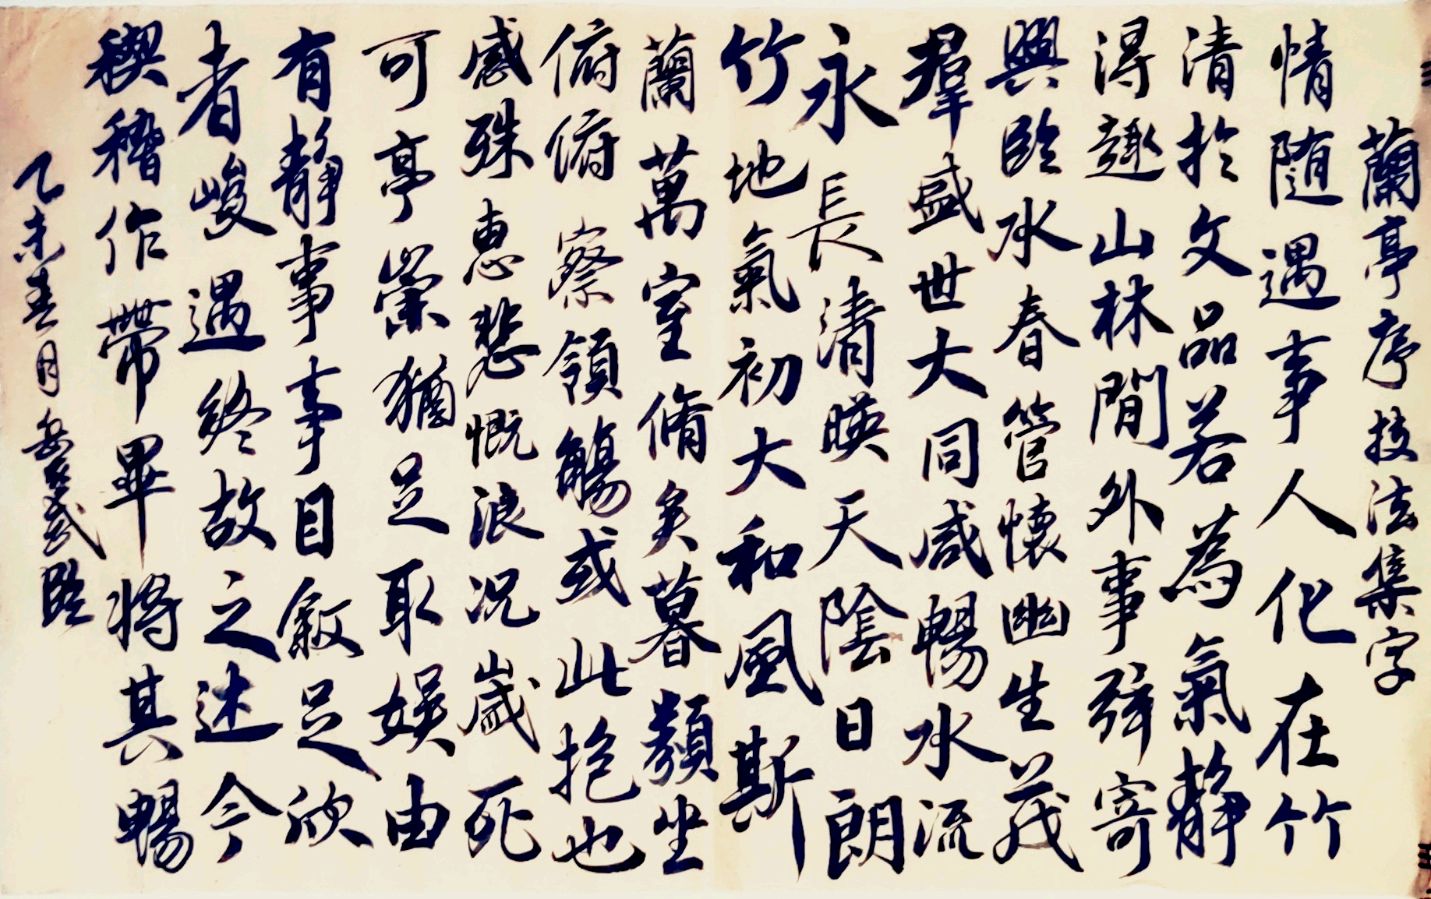 蘭亭序技法集字
情随遇事人化在竹
清於文品若為氣靜
得趣山林間外事殊寄
興臨水春管懷幽生茂
羣盛世大同咸暢水流
永長清暎天陰日朗
竹地氣初大和風斯
蘭萬室脩矣暮類坐
俯俯察領觴或此抱也
感殊惠悲慨浪况歲死
可亭崇猶足取娱由
有靜事事目叙足欣
者峻遇終故之述今
稧稽作帶畢将其暢
乙未春月